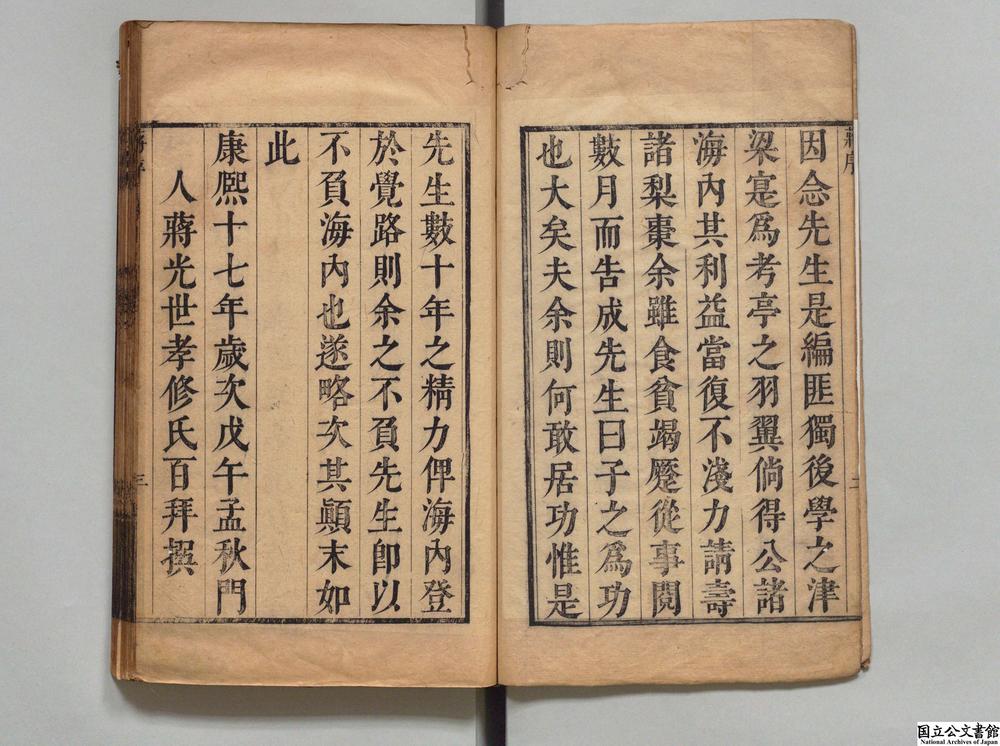 因念先生是編匪獨後學之津
梁寔爲考亭之羽翼倘得公諸
海内其利益當復不淺力請壽
諸梨棗余雖食貧竭蹷從事閱
數月而告成先生曰子之爲功
也大矣夫余則何敢居功惟是
先生數十年之精力俾海内登
於覺路則余之不負先生卽以
不負海内也遂略次其顚末如
此
康熙十七年歲次戊午孟秋門
人蔣光世孝修氏百拜撰
蔣序
三
国立公文書館
National Archives of Japan